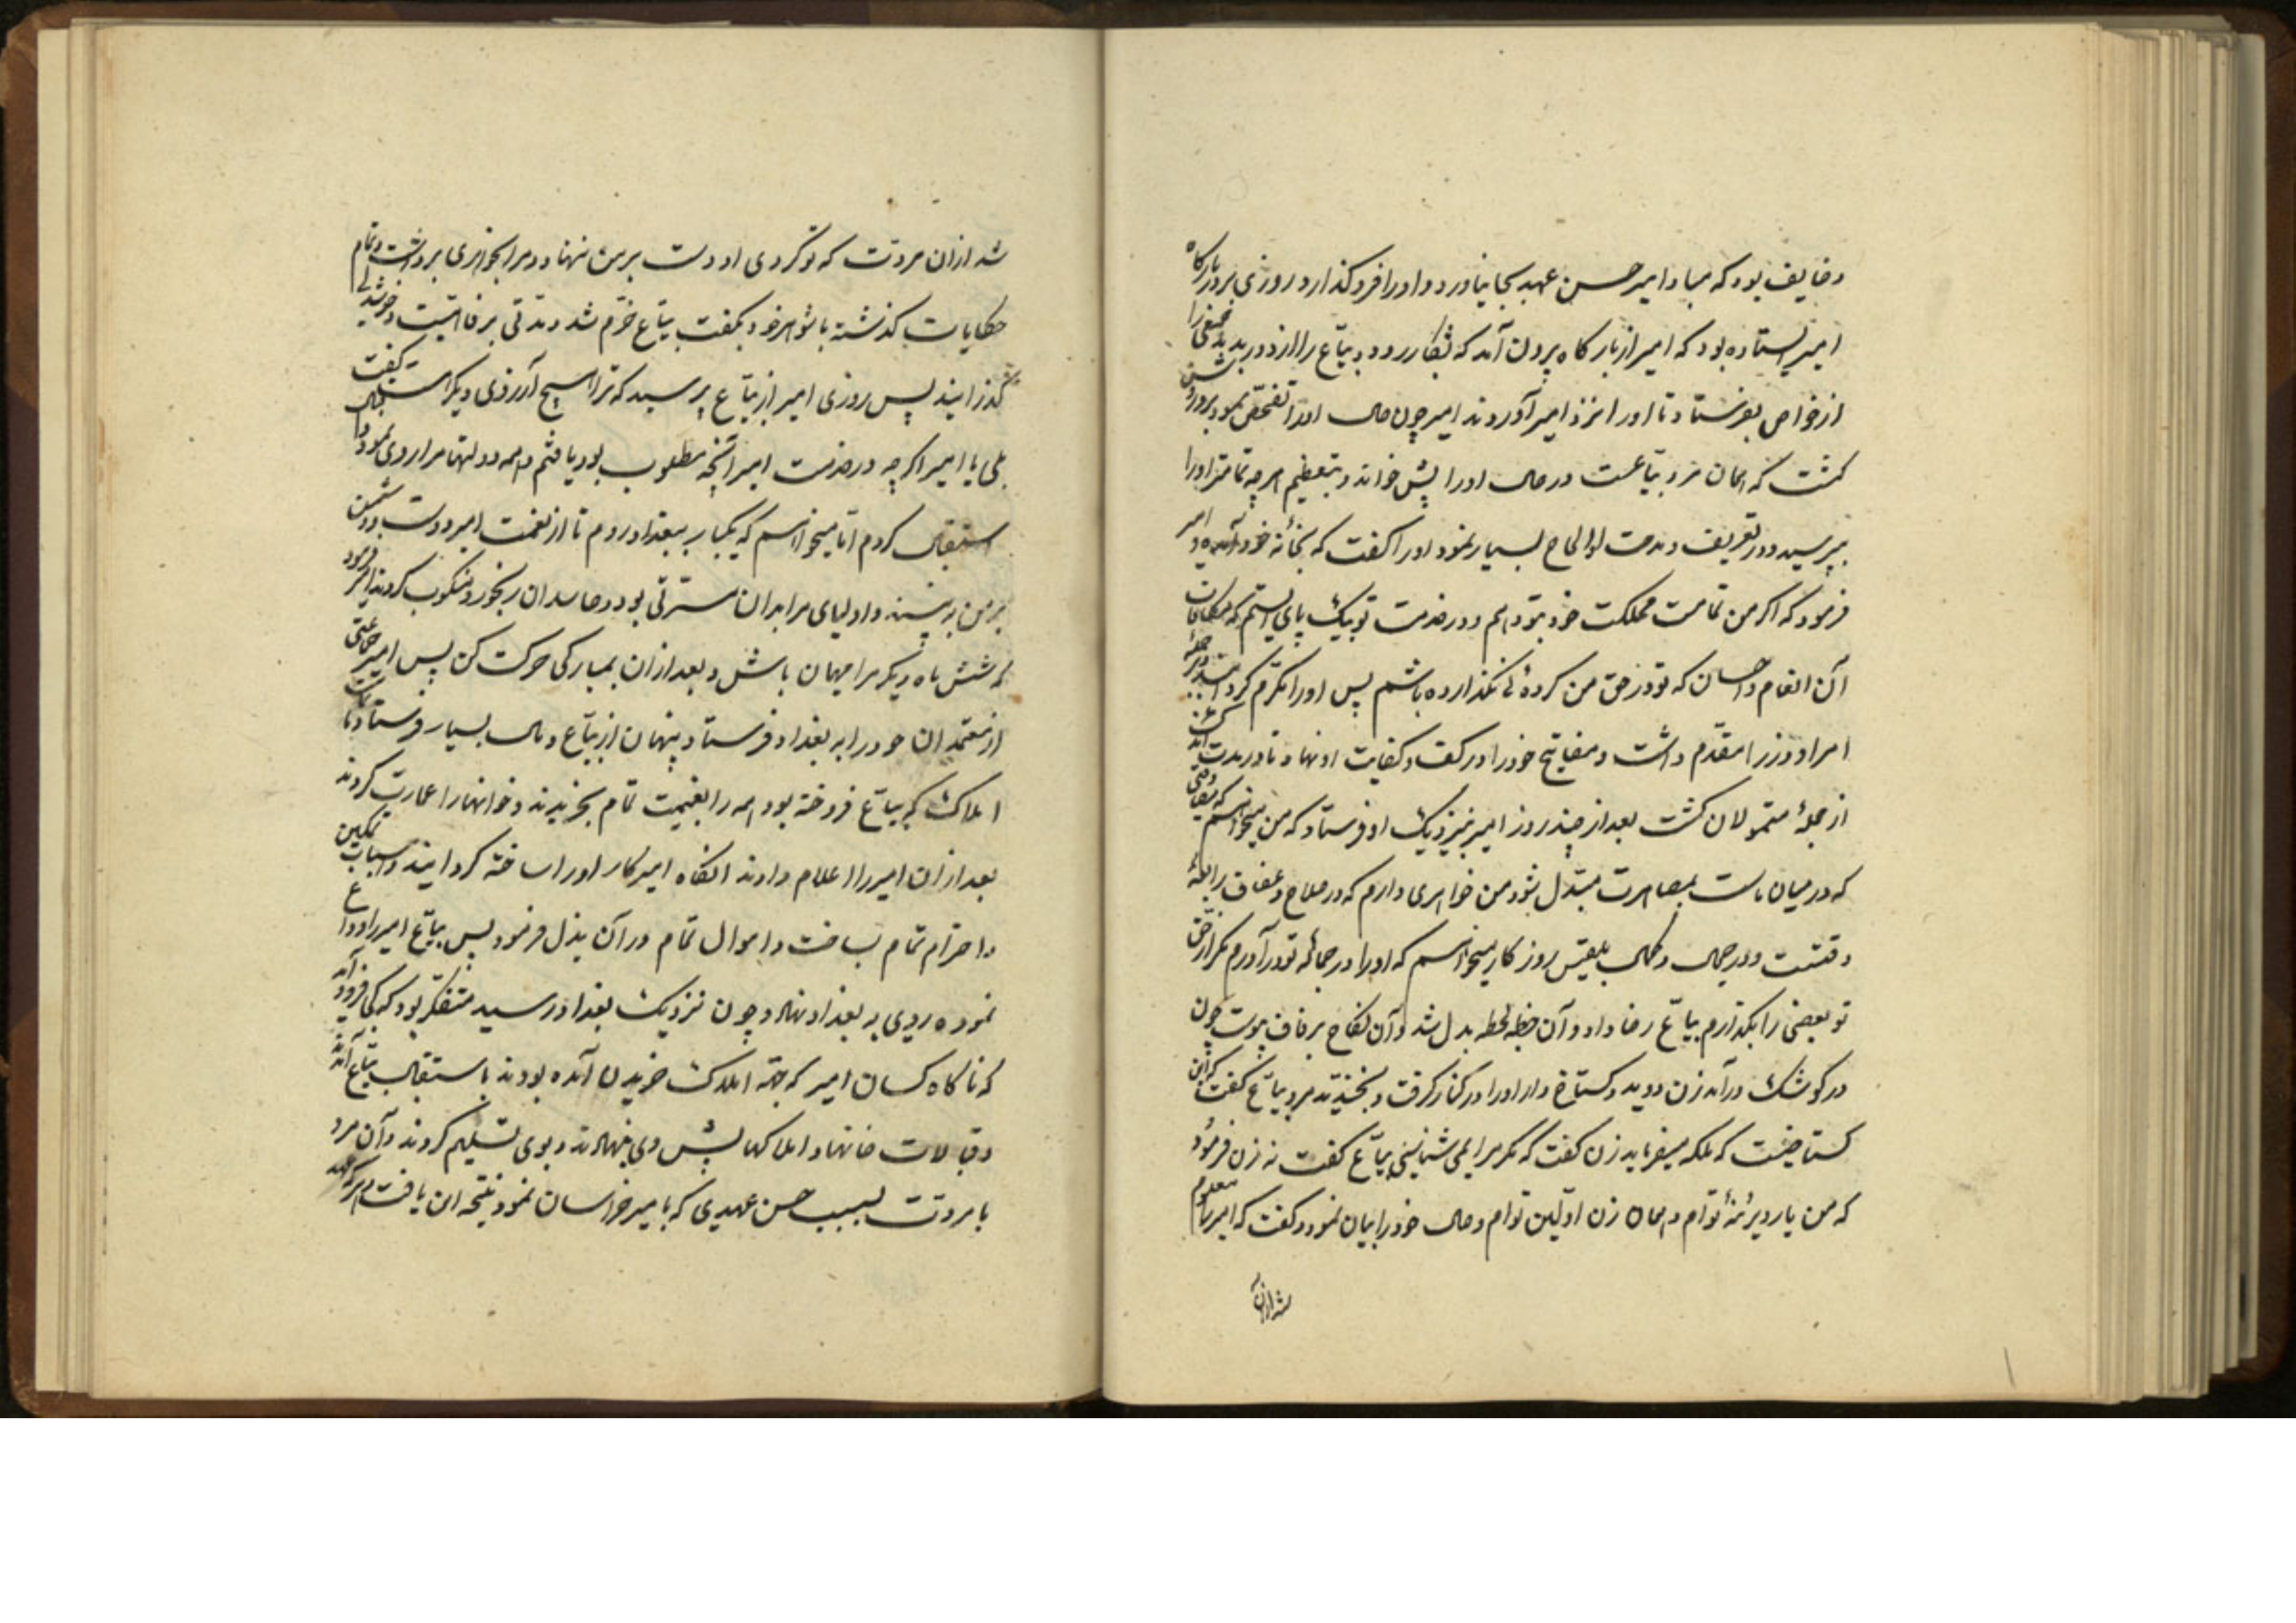 وخایف بود که مبادا میر حسن عهد بجا نیاورد و اورا فرو کذارد روزی بر در بارکاه
امیر ایستاده بود که امیر از بارکاه برون آمد که بشکار رود و بیّاع را از دور بدید شخصی را
از خواص بفرستاد تا اورا نزد امیر آوردند امیر چون حال اورا تفحّص نمود برو روشن
کشت که همان مرد بیّاعست در حال اورا پیش خواند و بتعظیم هرچه تمامتر اورا
بپرسید و در تعریف و مدحت او الحاح بسیار نمود اورا کفت که بخانهٔ خود آمدهٔ و امیر
فرمود که اکر من تمامت مملکت خود بتو دهم و در خدمت تو بیک پای بایستم که مکافات
آن انعام و احسان که تو در حق من کردهٔ نکذارده باشم پس اورا مکرّم کردانید و بر جملهٔ
امرا و وزرا مقدّم داشت و مفاتیح خود را در کف و کفایت او نهاد تا در مدت اندک
از جملهٔ متمولان کشت بعد از چند روز امیر بنزدیک او فرستاد که من میخواهم که مصادقتی
که در میان ماست بمصاهرت مبتدل شود من خواهری دارم که در صلاح و عفاف رابعهٔ
وقتست و در جمال و کمال بلقیس روز کار میخواهم که اورا در حبالهٔ تو درآورم مکر از حق
تو بعضی را بکذارم بیّاع رضا داد و آن خطبه لحظه بدل شد و آن نکاح بزفاف پیوست چون
در کوشک درآمد زن دوید و کستاخ وار اورا در کنار کرفت و بخندید مرد بیّاع کفت که این
کستاخیست که ملکه میفرماید زن کفت که مکر مرا نمی شناسی بیّاع کفت نه زن فرمود
که من یار دیرینهٔ توام و همان زن اوّلین توام و حال خود را بیان نمود و کفت که امیر را معلوم
شد ازان
شد ازان مروّت که تو کردی او دست بر من ننهاد و مرا بخواهری برداشت و تمام
حکایات کذشته با شوهر خود بکفت بیّاع خرّم شد و مدتی برفاهیّت و خوشدلی
کذرانیدند پس روزی امیر از بیّاع پرسید که ترا هیچ آرزوی دیکر هست کفت
بلی یا امیر اکرچه در خدمت امیر آنچه مطلوب بود یافتم و همه دولتها مرا روی نمود
استقبال کردم اما میخواهم که یکبار ببغداد روم تا از نعمت امیر دوست و دشمن
بر من به بینند و اولیای مرا بدان مسرّتی بود و حاسدان رنجور و منکوب کردند امیر فرمود
که شش ماه دیکر مرا مهمان باش و بعد ازان بمبارکی حرکت کن پس امیر جماعتی
از معتمدان خود را به بغداد فرستاد پنهان از بیّاع و مال بسیار فرستاد تا
املاک که بیّاع فروخته بود همه را بقیمت تمام بخریدند و خوانها را عمارت کردند
بعد ازان امیر را اعلام دادند آنکاه امیر کار اورا ساخته کردانید و اسباب تمکین
و احترام تمام بساخت و اموال تمام در آن بذل فرمود پس بیّاع امیر را وداع
نموده روی به بغداد نهاد و چون نزدیک بغداد رسید متفکر بود که کجا فرود آید
که ناکاه کسان امیر که بجهة املاک خریدن آمده بودند باستقبال بیّاع آمدند
و قبالات خانها و املاکها پیش وی نهادند و بوی تسلیم کردند و آن مرد
با مروّت بسبب حسن عهدی که با میر خراسان نمود نتیجه این یافت و هر که عهد